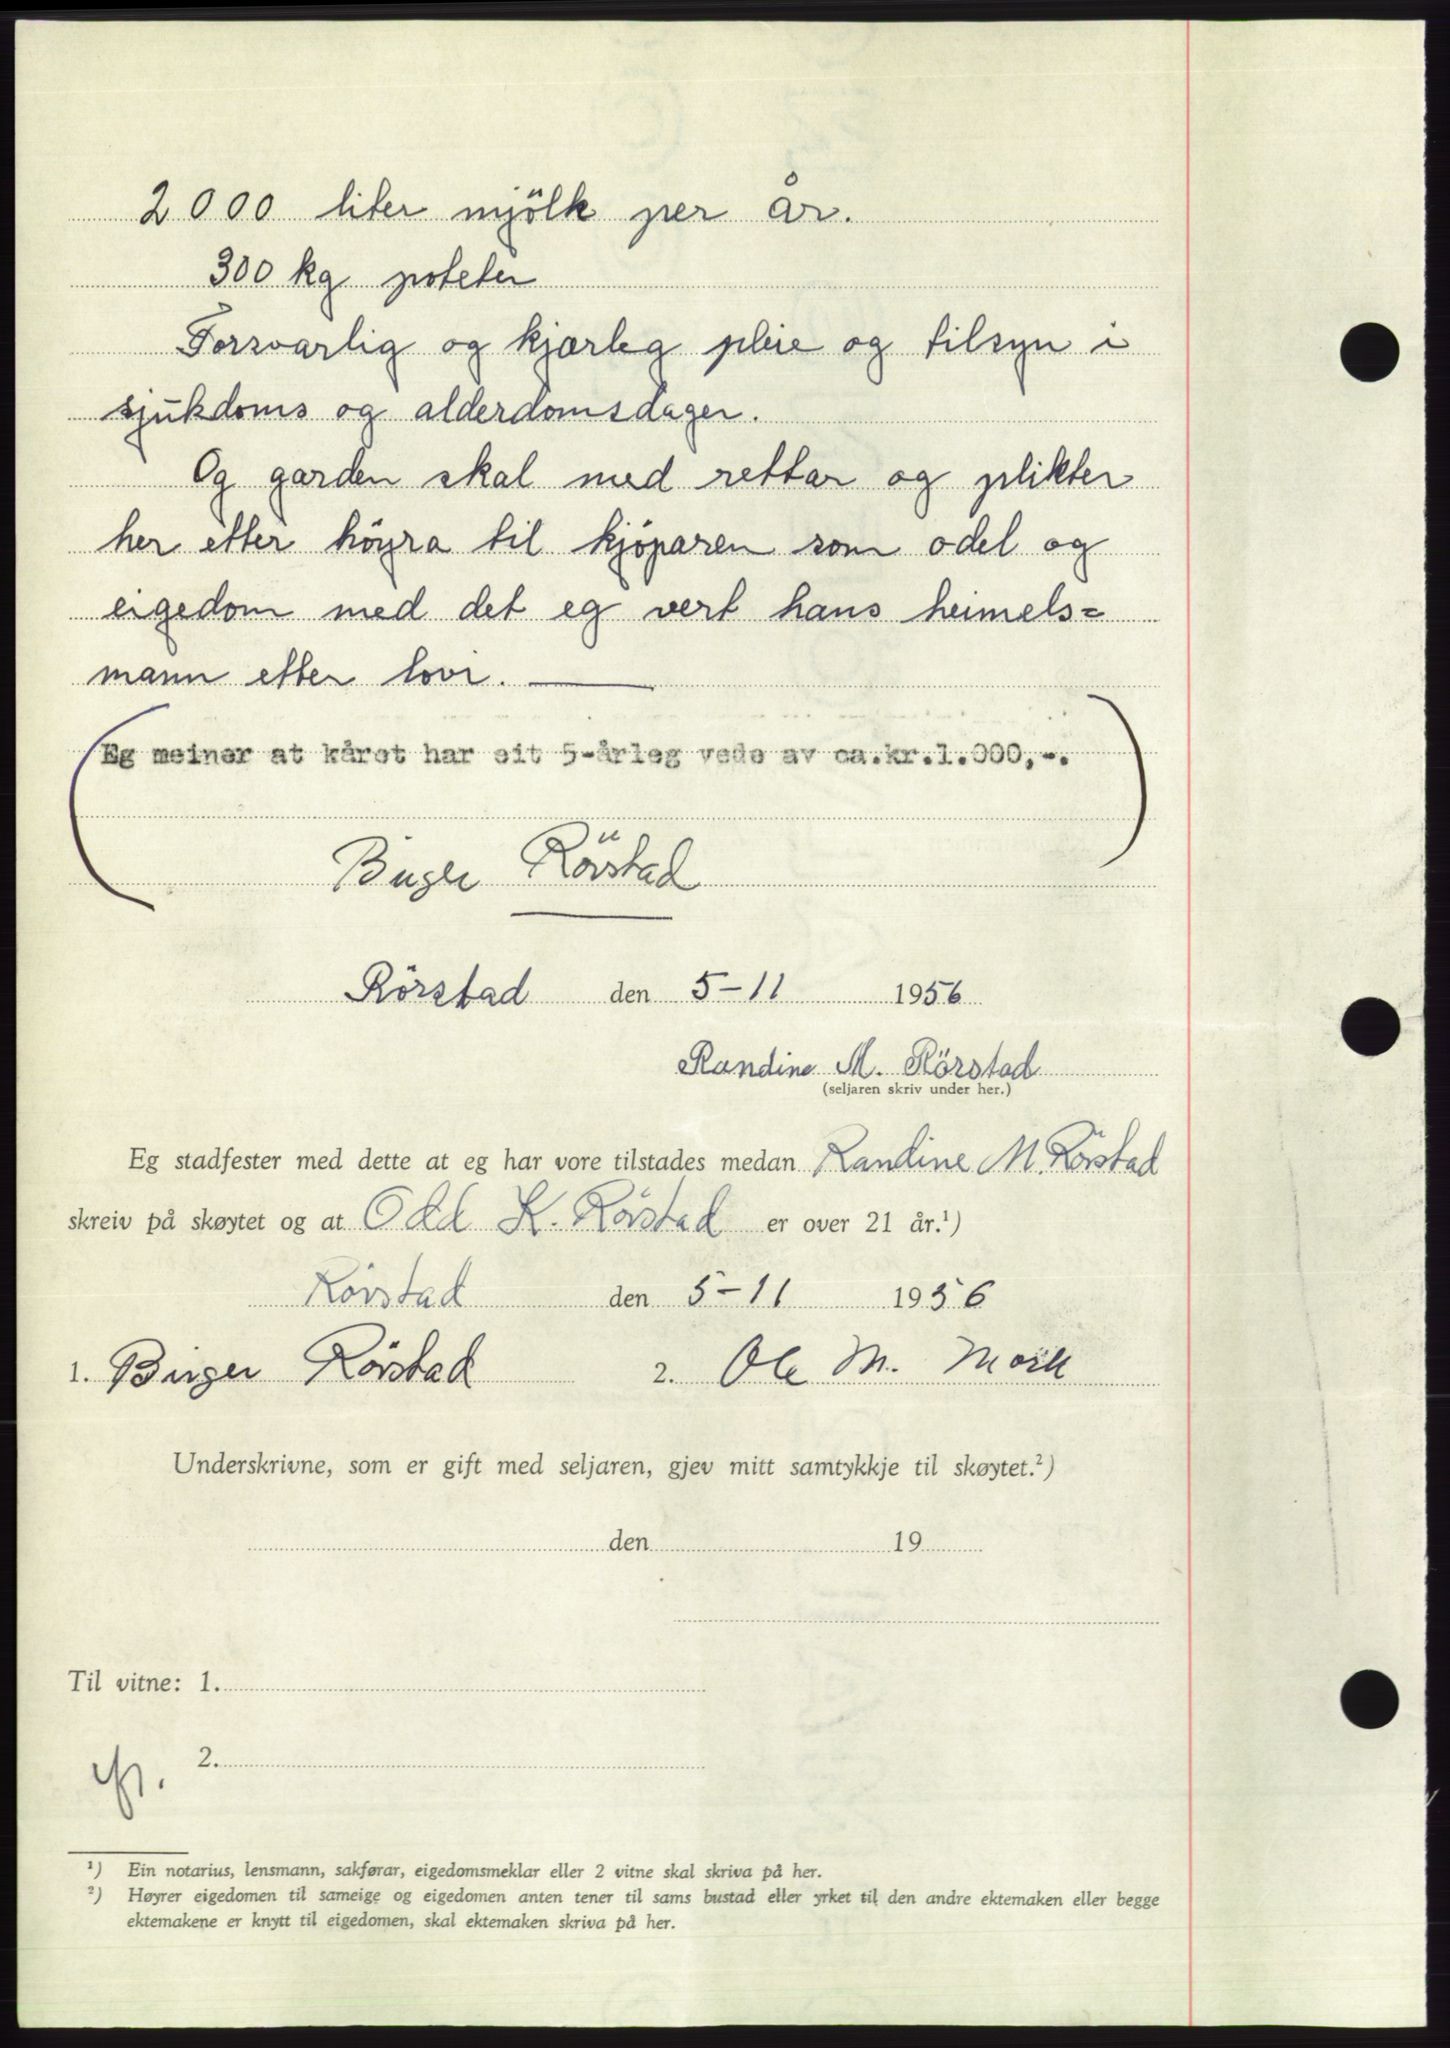 2000 liter mjölk per år.
300 kg poteter
Forsvarlig og kjærleg pleie og tilsyn i
sjukdoms og alderdomsdager.
Og garden skal med rettar og plikter
her etter höyra til kjöparen som odel og
eigedom med det eg vert hans heimels=
mann etter lovi.
Eg meiner at kåret har eit 5-årleg vede av ca.kr.1.000,-.
Birger Rörstad
Rörstad den 5-11 1956
Randine M. Rörstad
(seljaren skriv under her.)
Eg stadfester med dette at eg har vore tilstades medan Randine M. Rörstad
skreiv på skøytet og at Odd K. Rörstad er over 21 år.¹)
Rörstad den 5-11 1956
1. Birger Rörstad 2. Ole M. Mork
Underskrivne, som er gift med seljaren, gjev mitt samtykkje til skøytet.²)
den 19
Til vitne: 1.
2.
¹) Ein notarius, lensmann, sakførar, eigedomsmeklar eller 2 vitne skal skriva på her.
²) Høyrer eigedomen til sameige og eigedomen anten tener til sams bustad eller yrket til den andre ektemaken eller begge
ektemakene er knytt til eigedomen, skal ektemaken skriva på her.